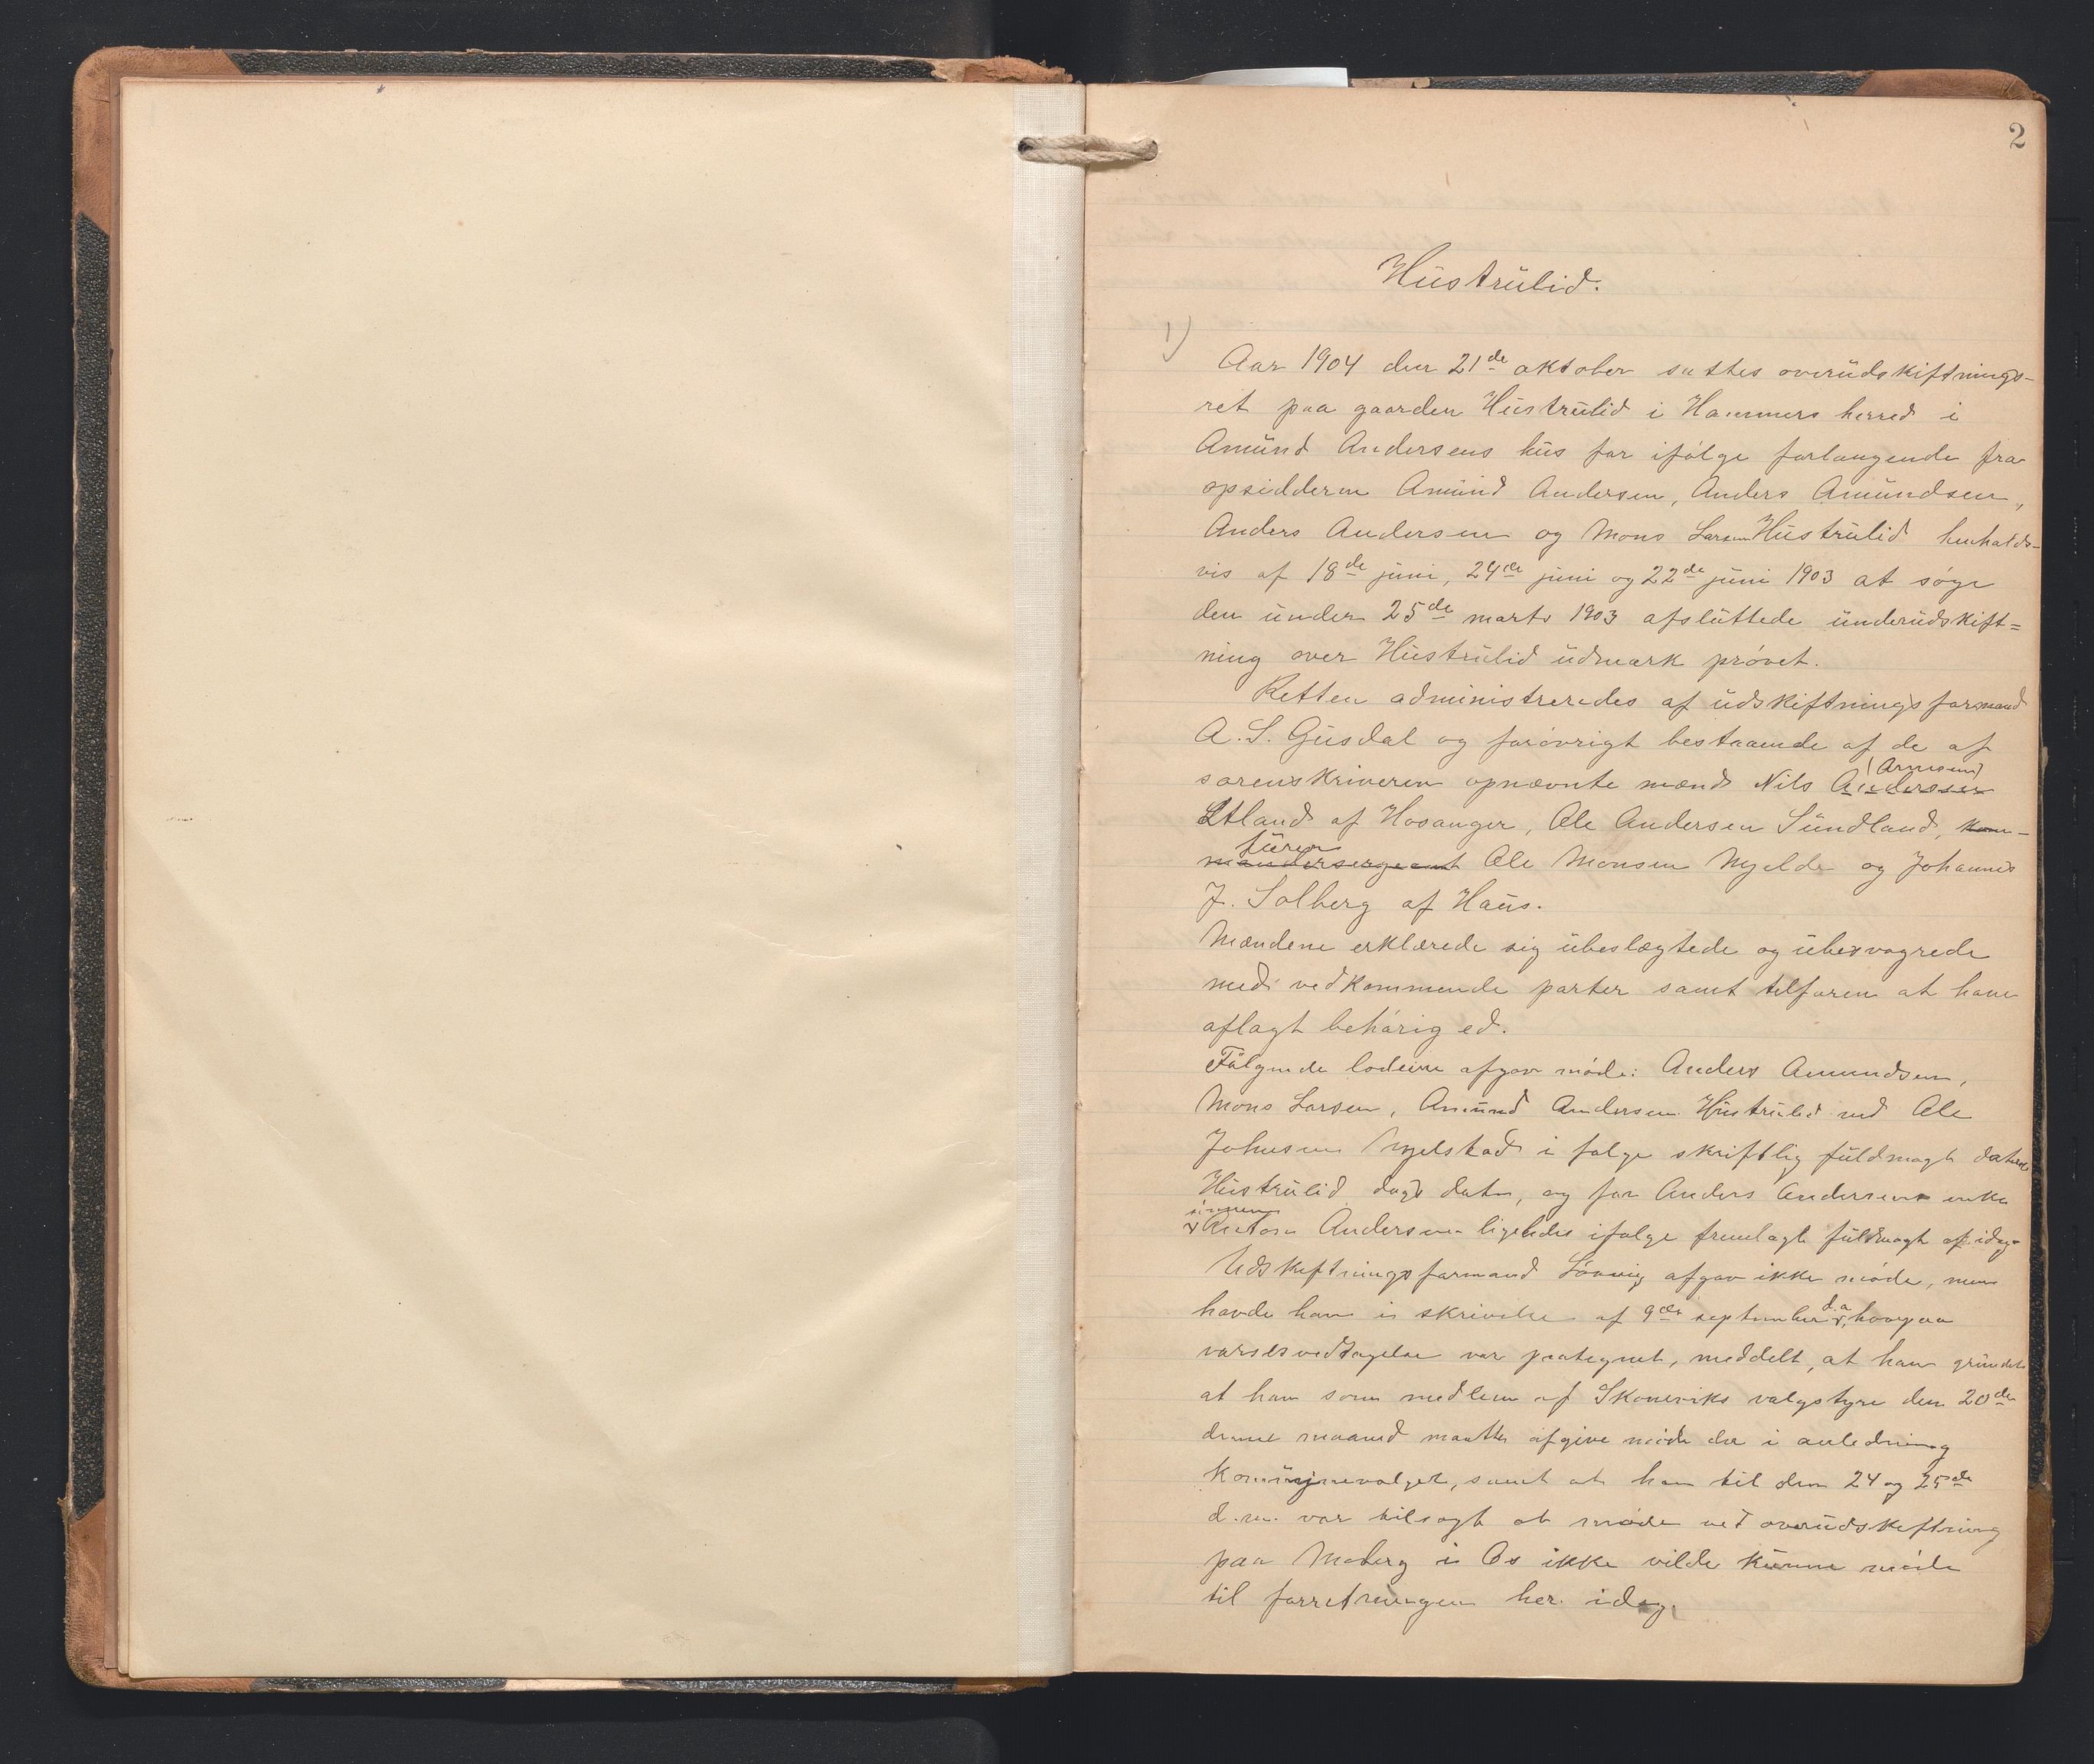 2
Hustrulid.
1)
Aar 1904 den 21de oktober sattes overudskiftnings-
ret paa gaarden Hustrulid i Hammers herred i
Amund Andersens hus for ifølge forlangende fra
opsidderne Amund Andersen, Anders Amundsen,
Anders Andersen og Mons Larsen Hustrulid henholds-
vis af 18de juni, 24de juni og 22de juni 1903 at søge
den under 25de marts 1903 afsluttede underudskift=
ning over Hustrulid udmark prøvet.
Retten administreredes af udskiftningsformand
A. S. Gusdal og forøvrigt bestaaende af de af
(Arnesen)
sorenskriveren opnævnte mænd Nils Andersen
Litland af Hosanger, Ole Andersen Sundland, kom-
furer
mandersergeant Ole Monsen Mjelde og Johannes
J. Solberg af Haus.
Mændene erklærede sig ubeslægtede og ubesvogrede
med vedkommende parter samt tilforen at have
aflagt behørig ed.
Følgende lodeiere afgav møde: Anders Amundsen,
Mons Larsen, Amund Andersen Hustrulid ved Ole
Johnsen Mjelstad i følge skriftlig fuldmagt dateret
Hustrulid dags dato, og for Anders Andersens enke
sønnen
Anton Andersen ligeledes ifølge fremlagt fuldmagt af idag.
Udskiftningsformand Lønning afgav ikke møde, men
havde han i skrivelse af 9de september d.a, hvorpaa
varselsvedtagelse var paategnet, meddelt, at han grundet
at han som medlem af Skoneviks valgstyre den 20de
denne maaned maatte afgive møde der i anledning
kommunevalget, samt at han til den 24 og 25de
d.m. var tilsagt at møde ved overudskiftning
paa Moberg i Os ikke vilde kunne møde
til forretningen her idag.